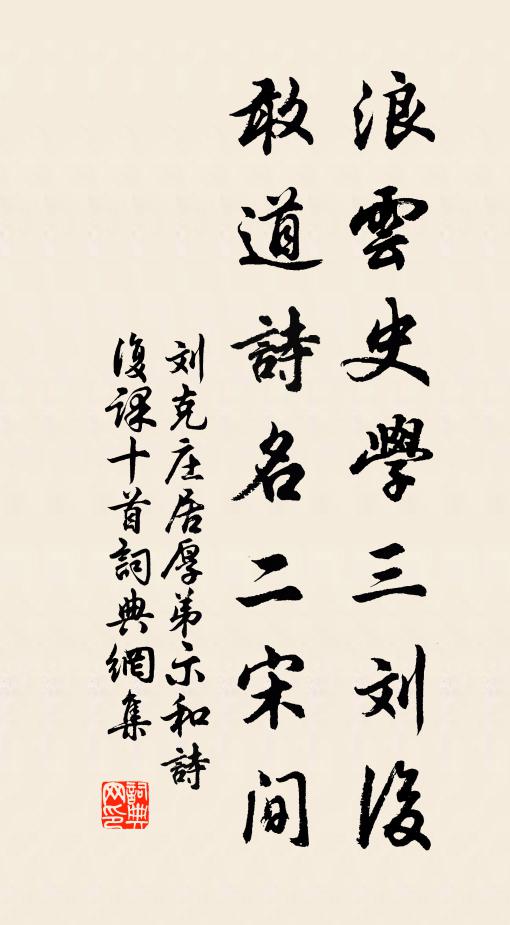 浪雲史學三刘後
敢道詩名二宋间
刘克庄居厚弟示和詩
復课十首詞典網集
詞典网印